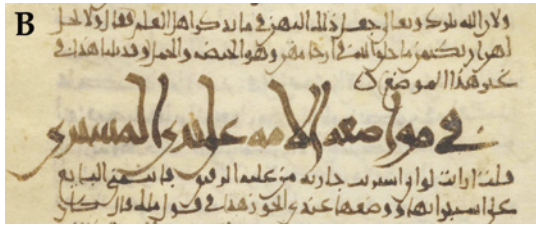 ولان الله تبرك وتعلى جعل ذلك اليهن في ما يذكر اهل العلم فقال ولا يحل
لهن ان يكتمن ما خلق الله في ارحامهن وهو الحيضة والحمل وقد بينا هذا في
غير هذا الموضع
في مواضعة الامة على يدي المشتري
قلت ارايت لو اشتريت جارية من علية الرقيق فايتمنني البايع
على استبرايها ووضعها عندي ايجوز هذا في قول ملك قال كان
B